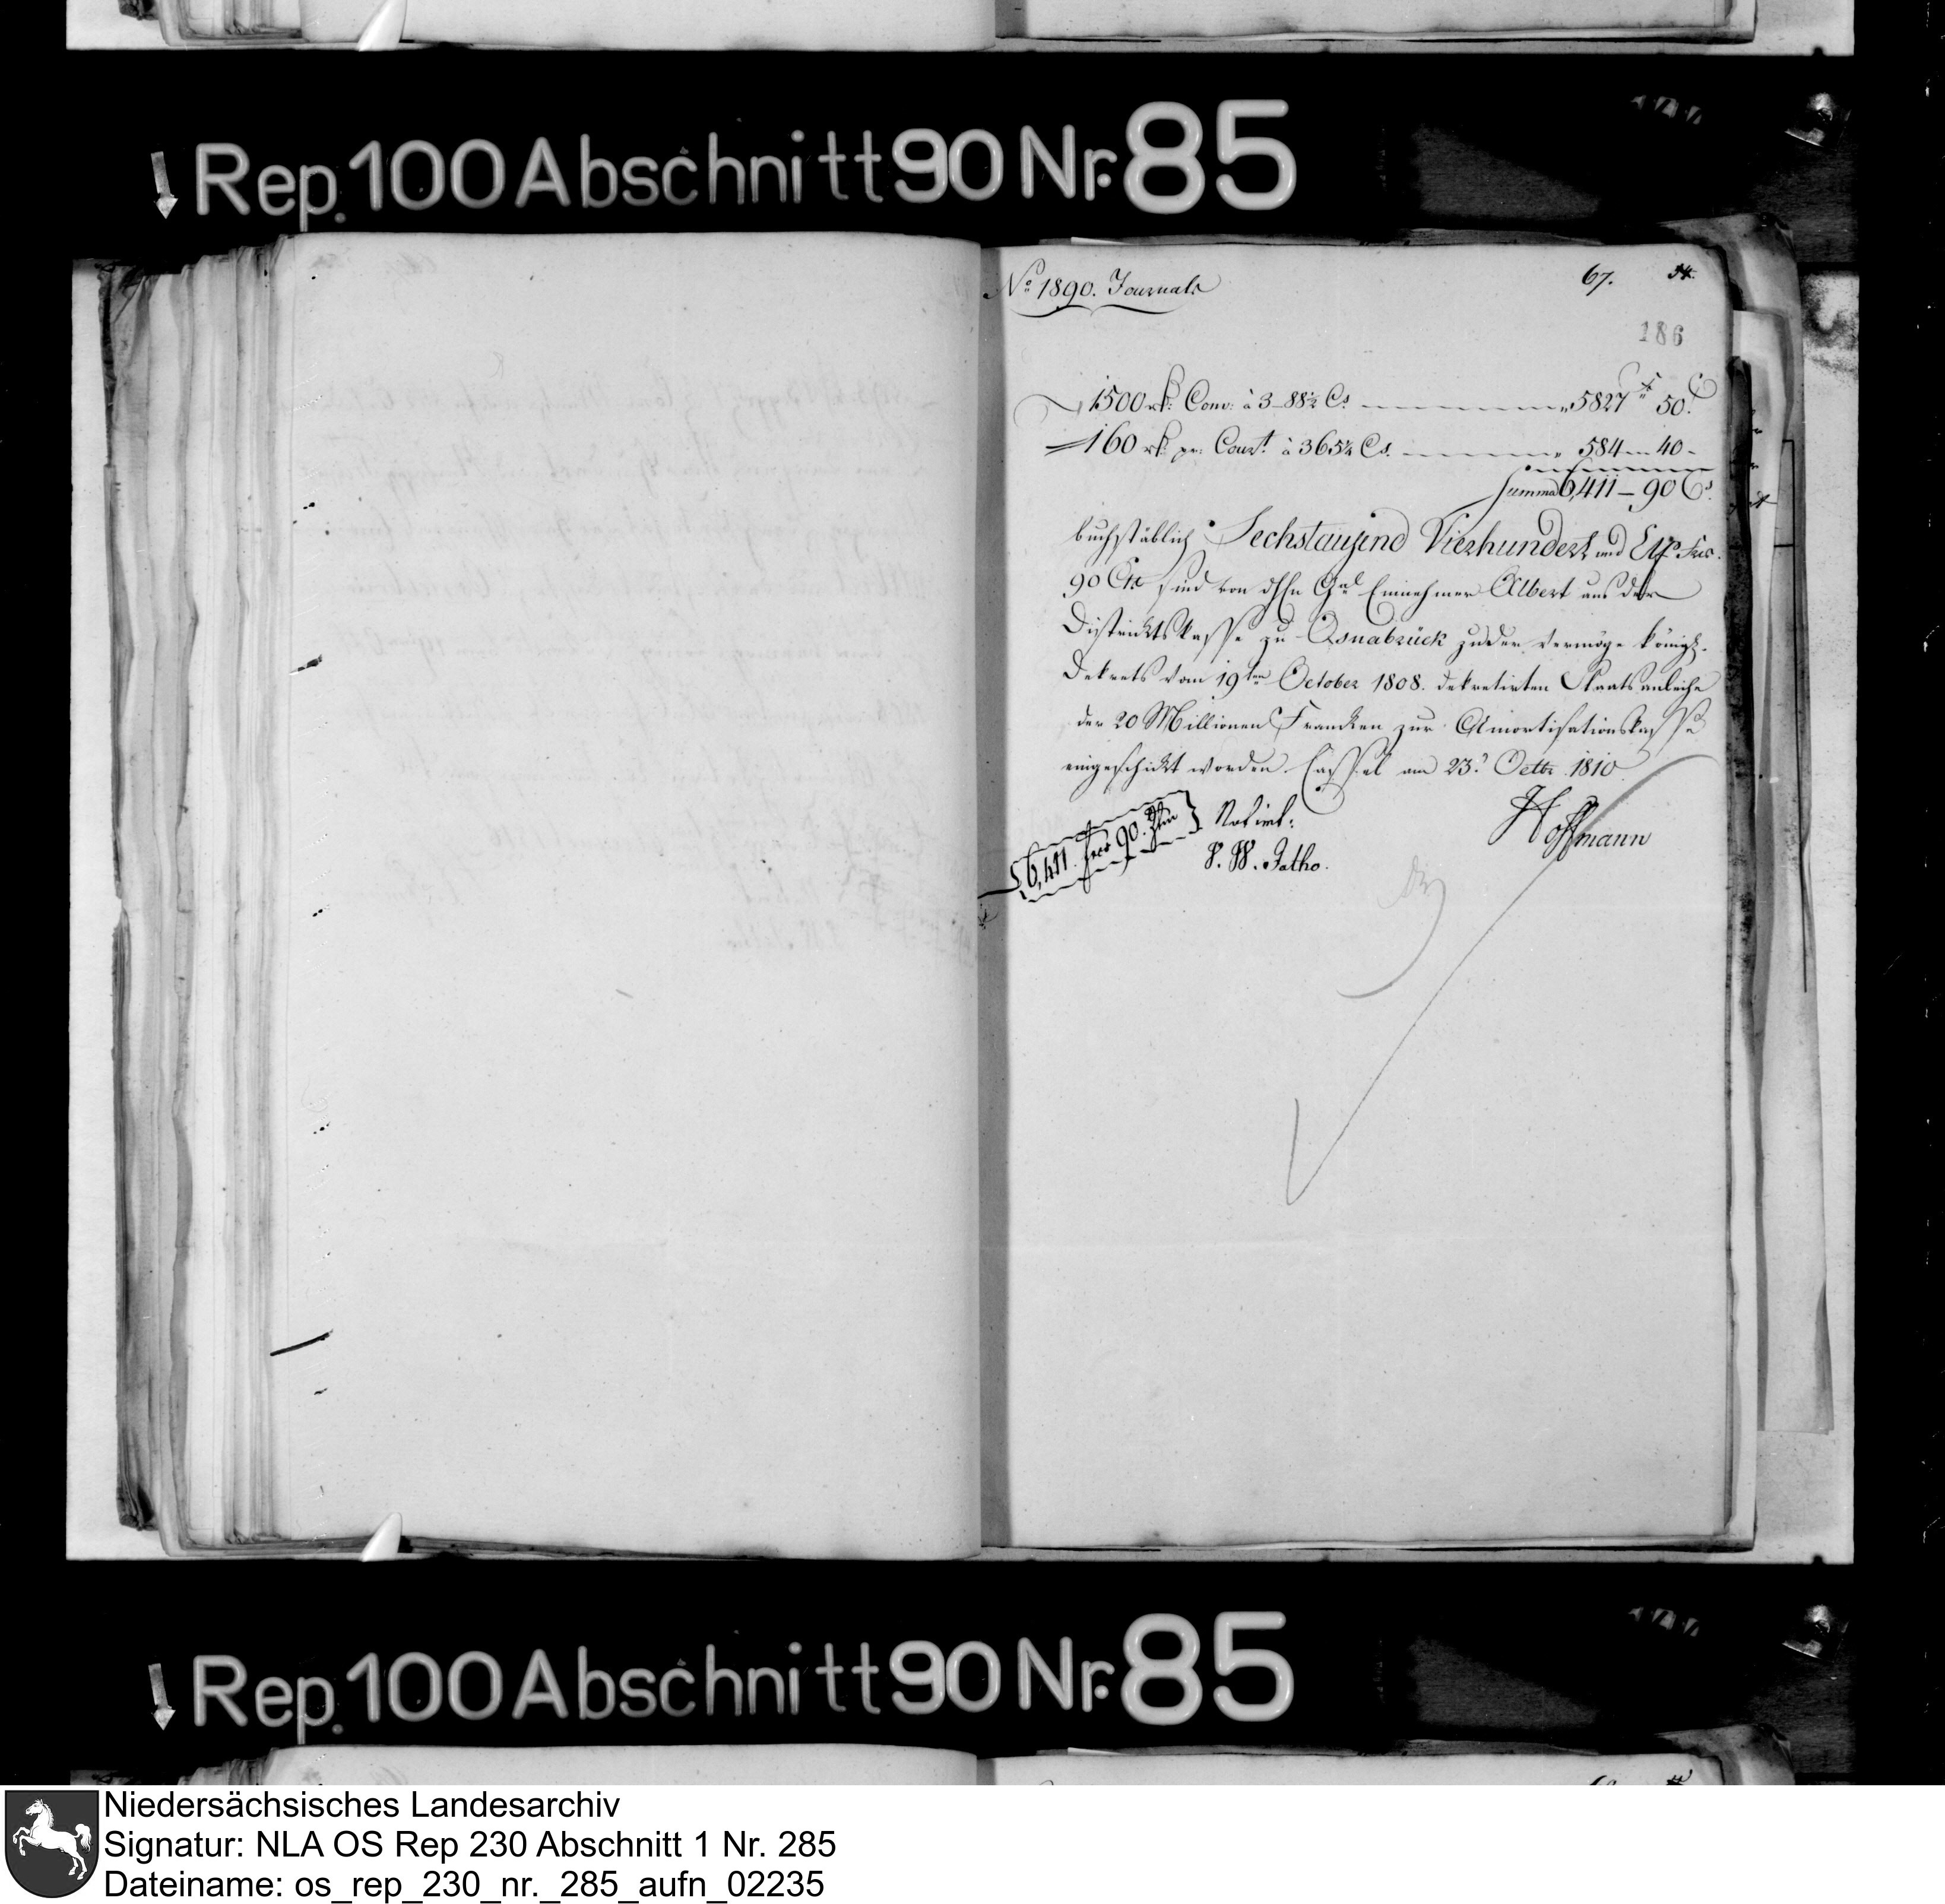 Rep. 100 Abschnitt 90 Nr. 85
No 1890. Journals
67. 34.
186
1500 rℓ: Conv: à 3-88½ Cs. 5827 Fs 50 C.
160 rℓ pr: Cour.t à 365¼ Cs. 584 — 40 -
Summa 6,411 — 90 Cs.
buchstäblich Sechstausend Vierhundert und Elf Frcs.
90 Cts sind von dHn Gal Einnehmer Albert aus der
Districtskasse zu Osnabrück zu der vermöge königl.
Dekrets vom 19ten October 1808. dekretirten Staatsanleihe
der 20 Millionen Francken zur Amortisationskasse
eingeschickt worden. Cassel am 23. Octbr 1810
Hoffmann
6,411 frcs 90. Ctm
Notirt:
F. W. Jatho.
Rep. 100 Abschnitt 90 Nr. 85
Niedersächsisches Landesarchiv
Signatur: NLA OS Rep 230 Abschnitt 1 Nr. 285
Dateiname: os_rep_230_nr._285_aufn_02235